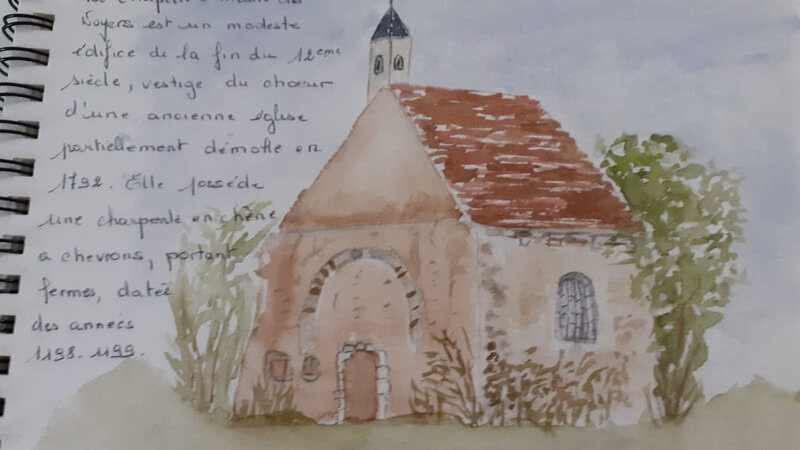 Noyers est un modeste
édifice de la fin du 12eme
siècle, vestige du chœur
d'une ancienne église
partiellement démolie en
1792. Elle possède
une charpente en chêne
a chevrons, portant
fermes, datée
des années
1198. 1199.